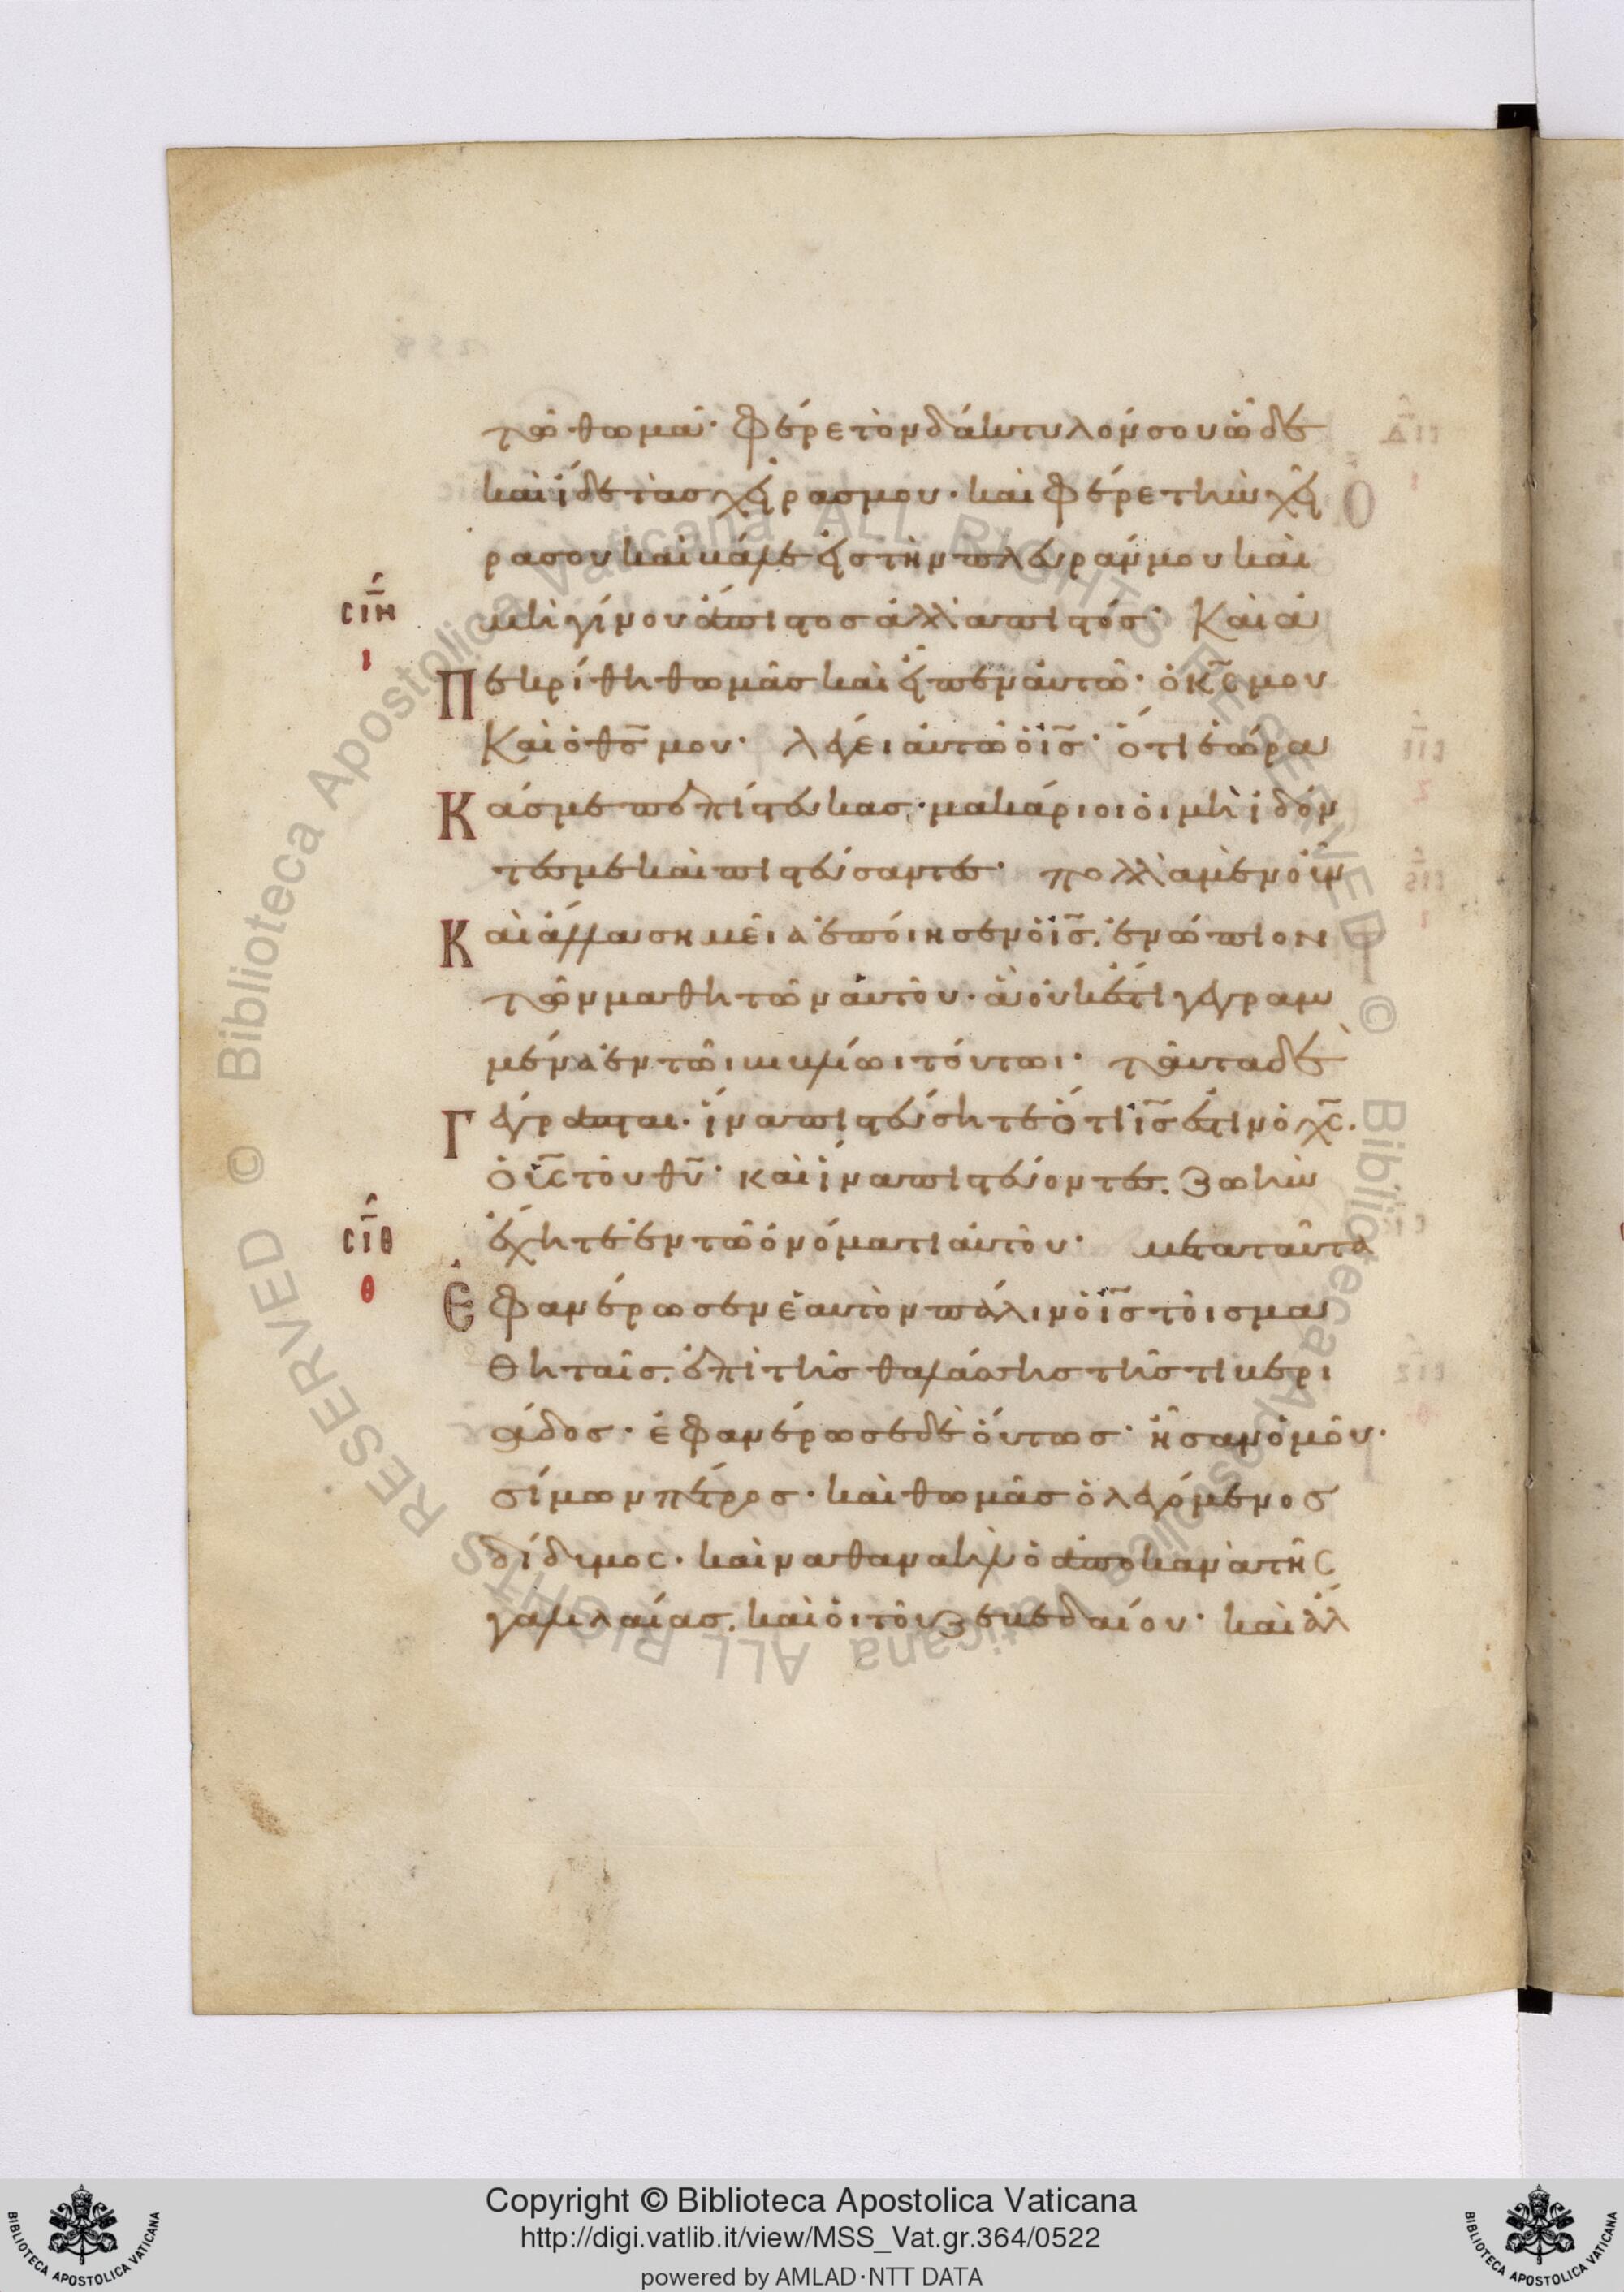 τῶ θωμᾶ· φέρε τὸν δάκτυλόν σου ὧδε
καὶ ἴδε τὰς χεῖράς μου· καὶ φέρε τὴν χεῖ
ρα σου καὶ βάλε εἰς τὴν πλευράν μου καὶ
σιη
μὴ γίνου ἄπιστος ἀλλὰ πιστός· Καὶ ἀ
ι
Πεκρίθη θωμᾶς καὶ εἶπεν αὐτῶ· ὁ κ̅ς̅ μου
Καὶ ὁ θ̅ς̅ μου· λέγει αὐτῶ ὁ ι̅ς̅· ὅτι ἑώρα
Κάς με πεπίστευκας· μακάριοι οἱ μὴ ἰδόν
τές με καὶ πιστεύσαντες· πολλὰ μὲν οὖν
Καὶ ἄλλα σημεῖα ἐποίησεν ὁ ι̅ς̅. ἐνώπιον
τῶν μαθητῶν αὐτοῦ· ἃ οὐκ ἔστι γεγραμ
μένα ἐν τῶι βιβλίωι τούτωι· ταῦτα δὲ
Γέγραπται· ἵνα πιστεύσητε ὅτι ι̅ς̅ ἐστιν ὁ χ̅ς̅.
ὁ υ̅ς̅ τοῦ θ̅υ̅· καὶ ἵνα πιστεύοντες. ζωὴν
σιθ
ἔχητε ἐν τῶ ὀνόματι αὐτοῦ· μετὰ ταῦτα
θ
Ἐφανέρωσεν ἑαυτὸν πάλιν ὁ ι̅ς̅ τοῖς μα
θηταῖς. ἐπὶ τῆς θαλάσσης τῆς τιβερι
άδος· ἐφανέρωσε δὲ οὕτως· ἦσαν ὁμοῦ·
σίμων πέτρος· καὶ θωμᾶς ὁ λεγόμενος
δίδυμος· καὶ ναθαναὴλ ὁ ἀπὸ κανὰ τῆς
γαλιλαίας. καὶ οἱ τοῦ ζεβεδαίου· καὶ ἄλ
Copyright © Biblioteca Apostolica Vaticana
http://digi.vatlib.it/view/MSS_Vat.gr.364/0522
powered by AMLAD·NTT DATA